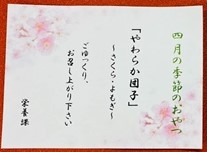 四月の季節のおやつ
「やわらか団子」
～さくら・よもぎ～
ごゆっくり、
お召し上がり下さい
栄養課